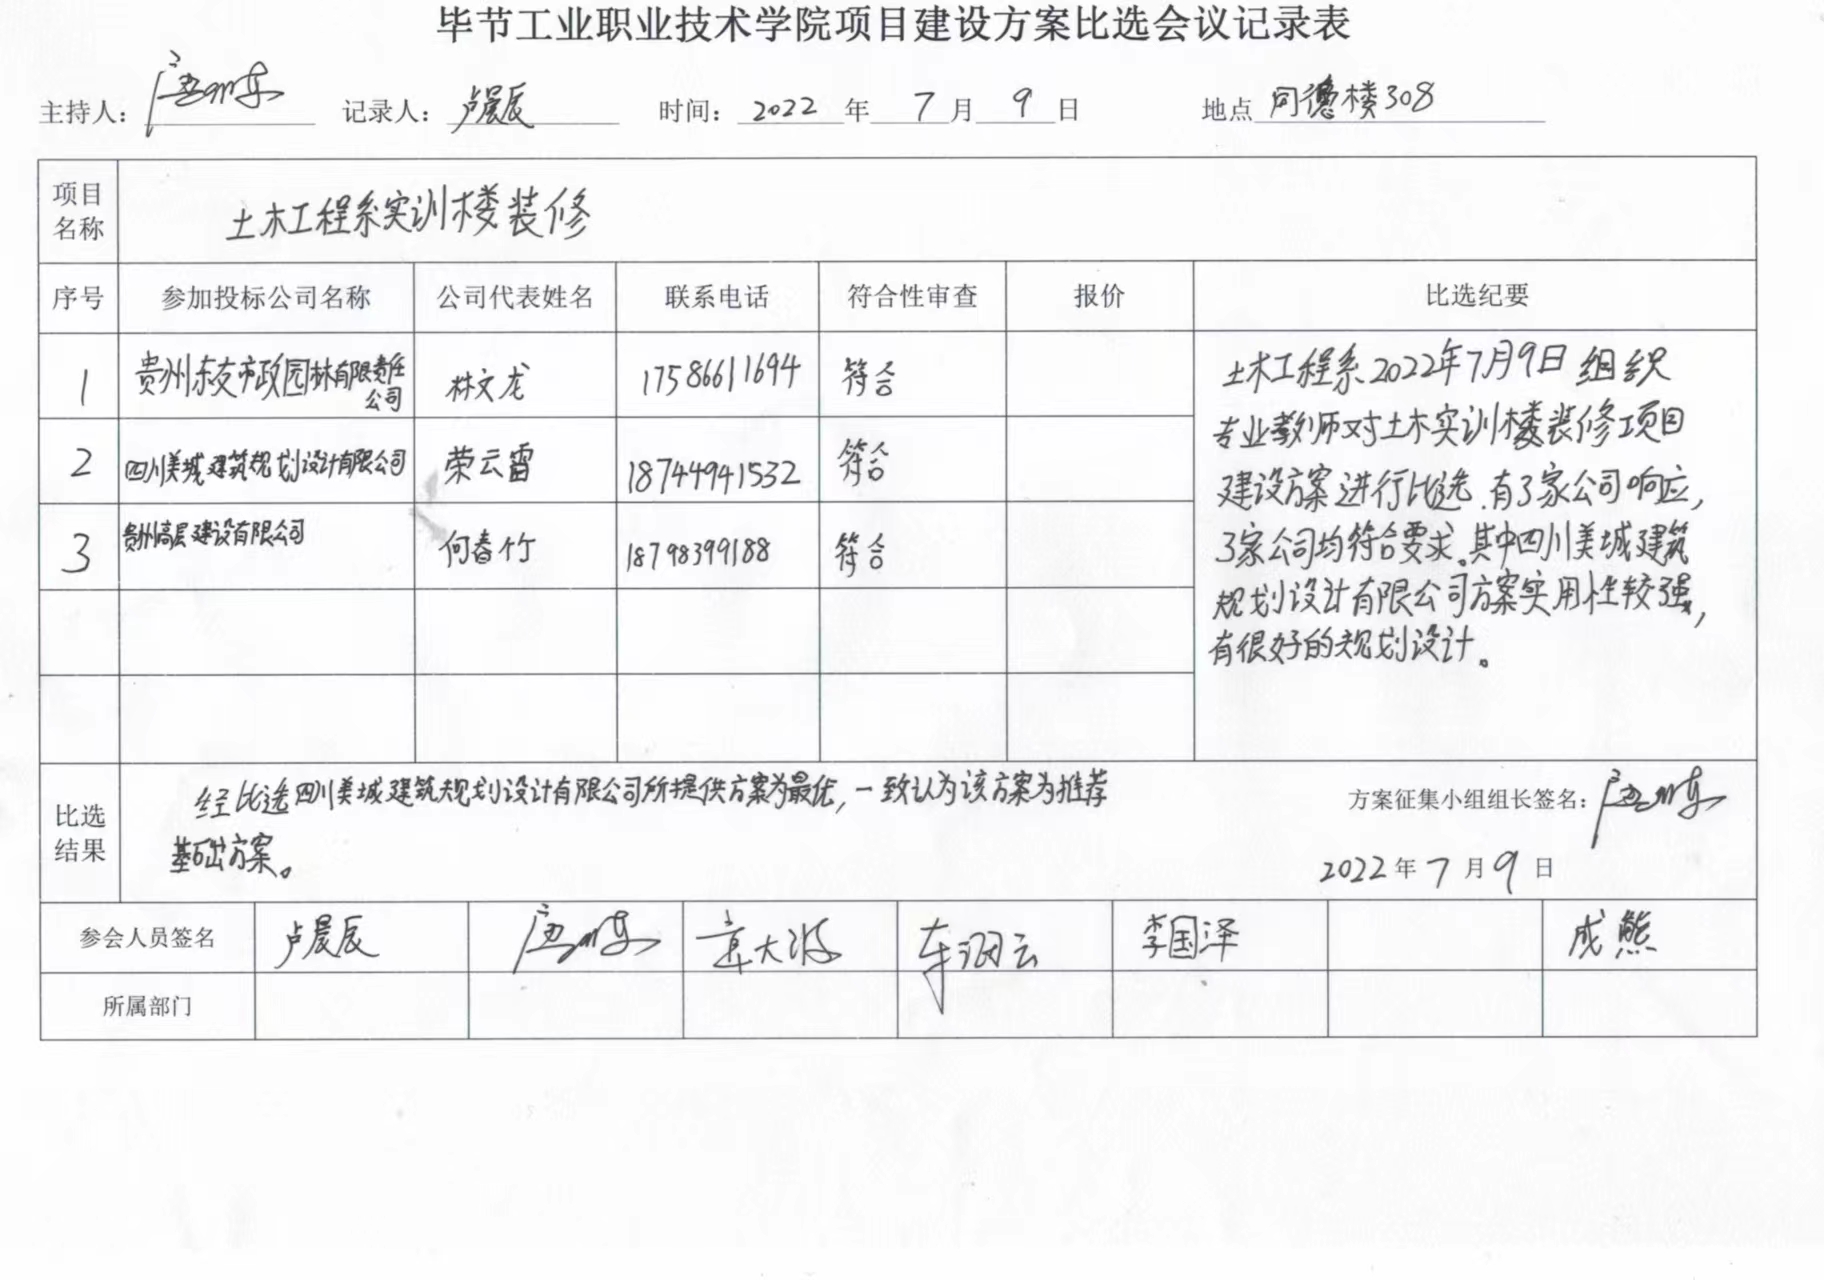 毕节工业职业技术学院项目建设方案比选会议记录表
主持人： 记录人：卢晨辰 时间：2022年7月9日 地点 同德楼308
项目名称 土木工程系实训楼装修
序号 参加投标公司名称 公司代表姓名 联系电话 符合性审查 报价 比选纪要
1 贵州东交市政园林有限责任公司 林文龙 17586611694 符合
2 四川美城建筑规划设计有限公司 荣云雷 18744941532 符合
3 贵州高层建设有限公司 何春竹 18798399188 符合
土木工程系2022年7月9日组织
专业教师对土木实训楼装修项目
建设方案进行比选.有3家公司响应，
3家公司均符合要求。其中四川美城建筑
规划设计有限公司方案实用性较强，
有很好的规划设计。
比选结果 经比选四川美城建筑规划设计有限公司所提供方案为最优，一致认为该方案为推荐
基础方案。
方案征集小组组长签名：
2022年7月9日
参会人员签名 卢晨辰 李国泽 成熊
所属部门